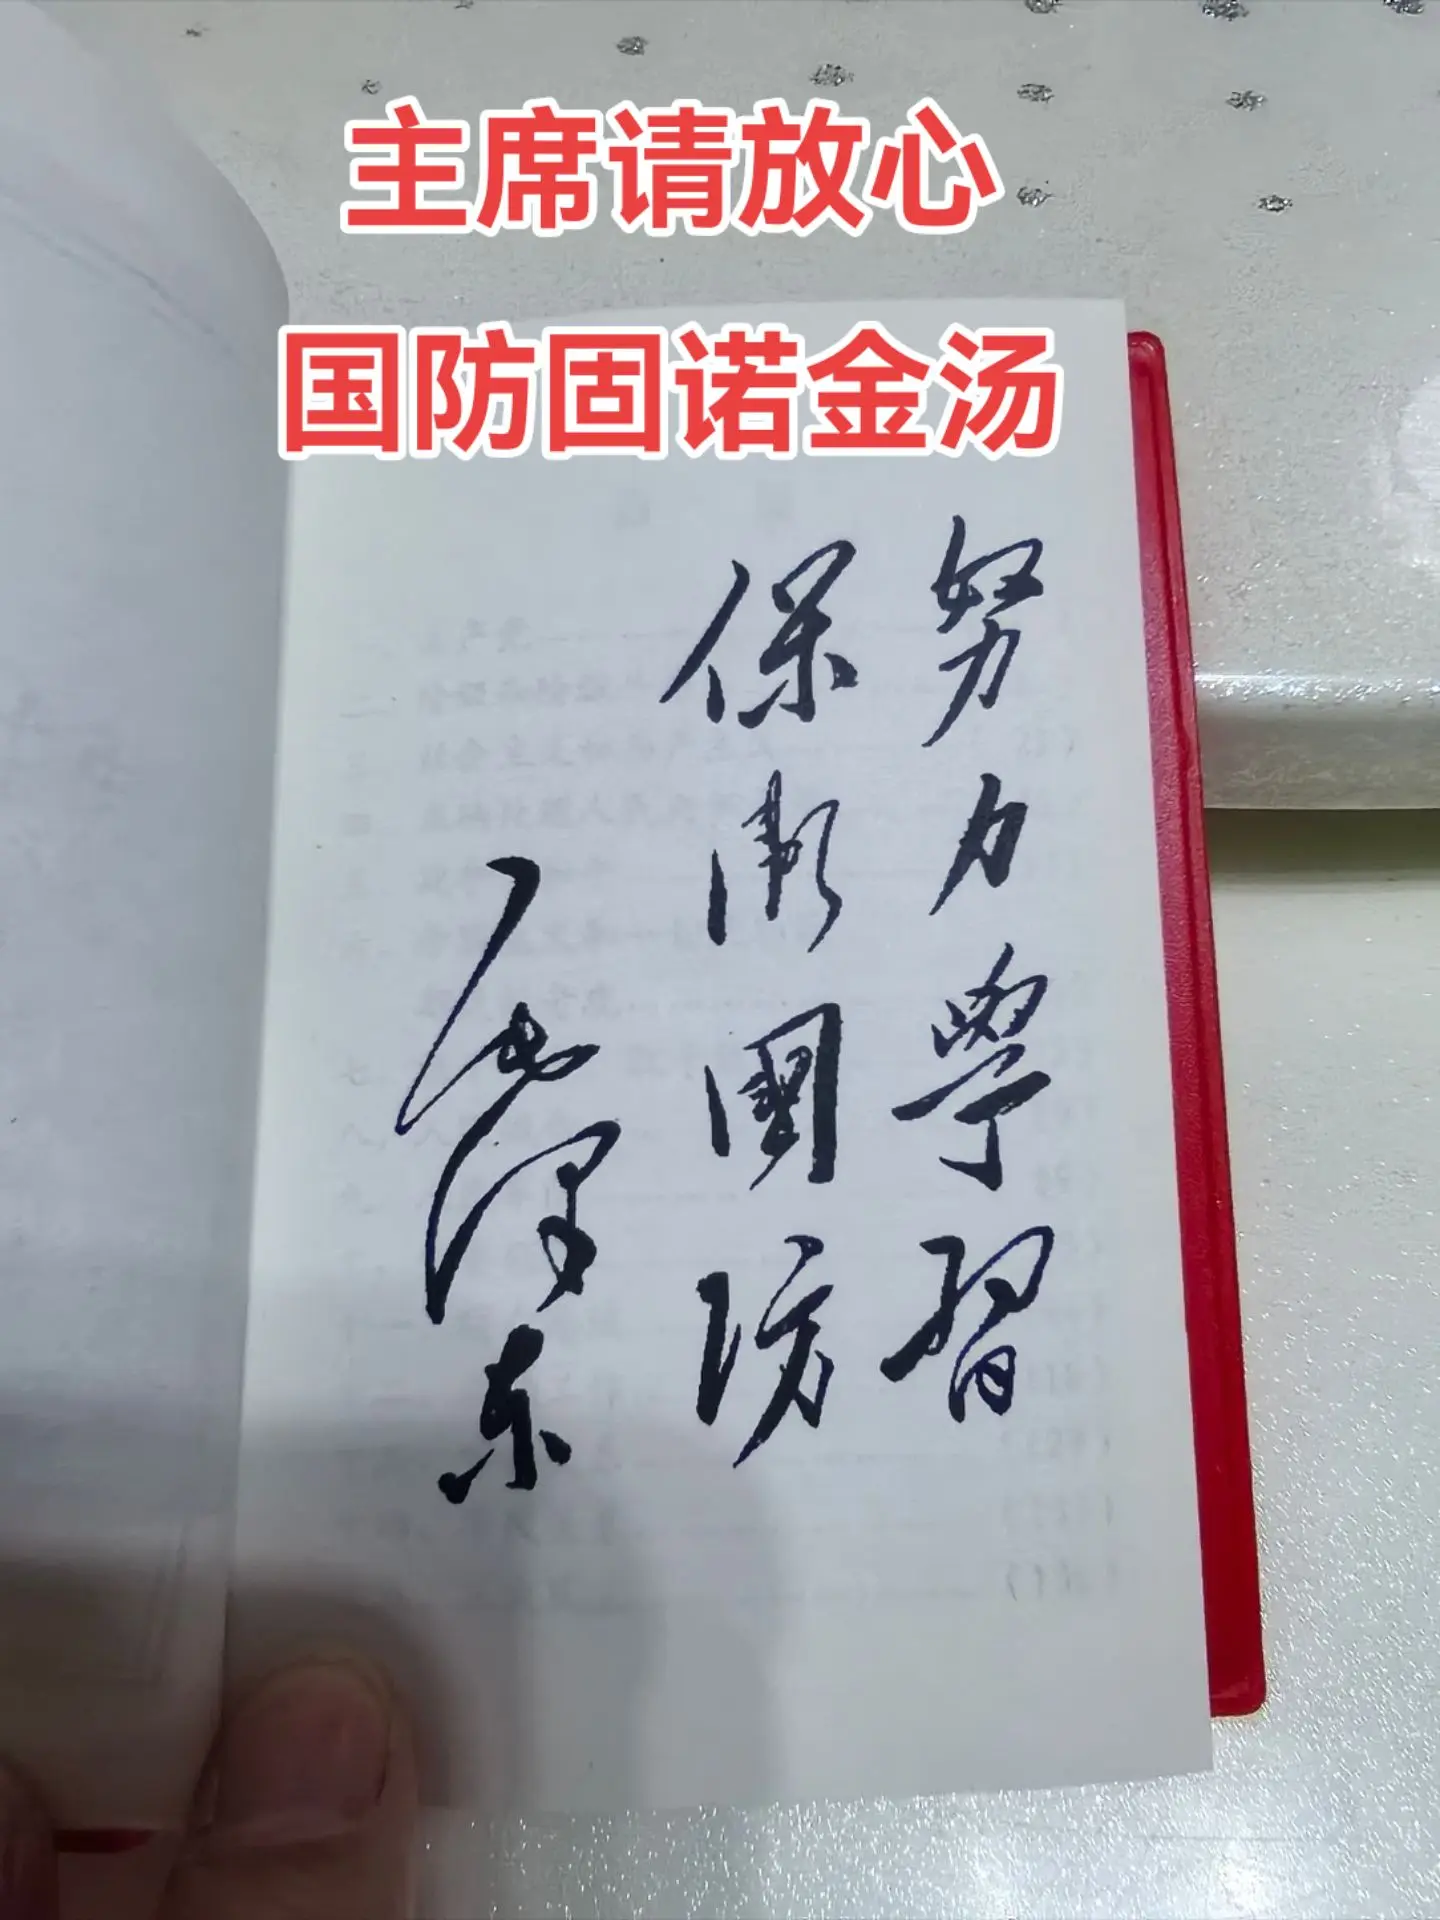 主席请放心
国防固诺金汤
努力學習
保衛國防
毛泽东